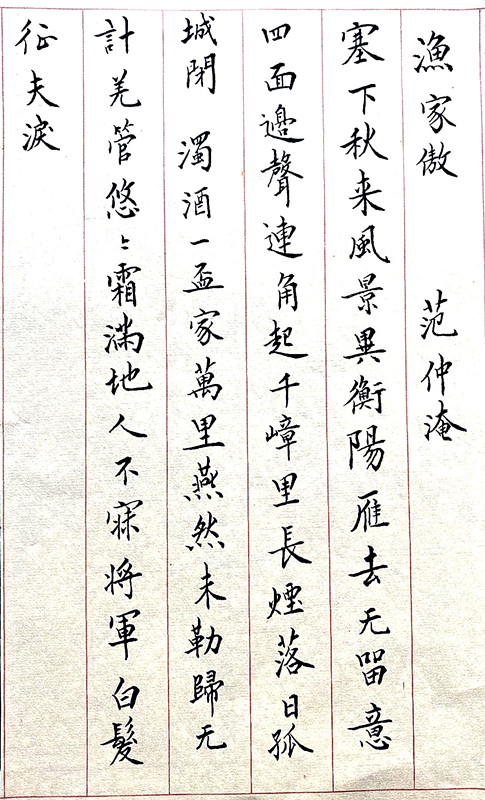 漁家傲 范仲淹
塞下秋来風景異衡陽雁去无留意
四面邊聲連角起千嶂里長煙落日孤
城閉 濁酒一盃家萬里燕然未勒歸无
計羌管悠〻霜滿地人不寐將軍白髮
征夫淚